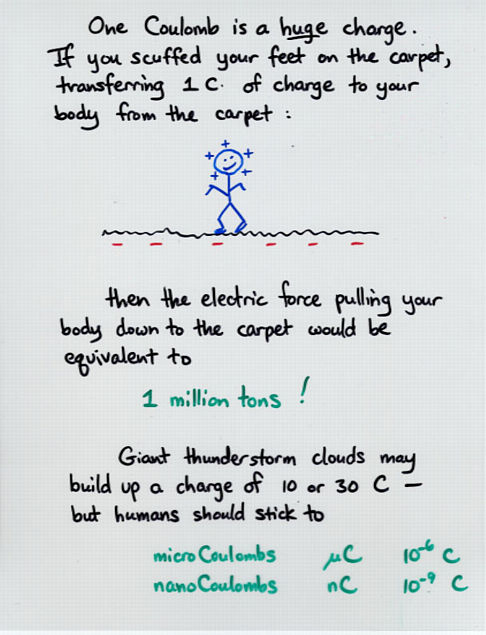 One Coulomb is a huge charge.
If you scuffed your feet on the carpet,
transferring 1 C. of charge to your
body from the carpet :
+ + + + +
- - - - - -
then the electric force pulling your
body down to the carpet would be
equivalent to
1 million tons !
Giant thunderstorm clouds may
build up a charge of 10 or 30 C —
but humans should stick to
microCoulombs μC 10⁻⁶ C
nanoCoulombs nC 10⁻⁹ C